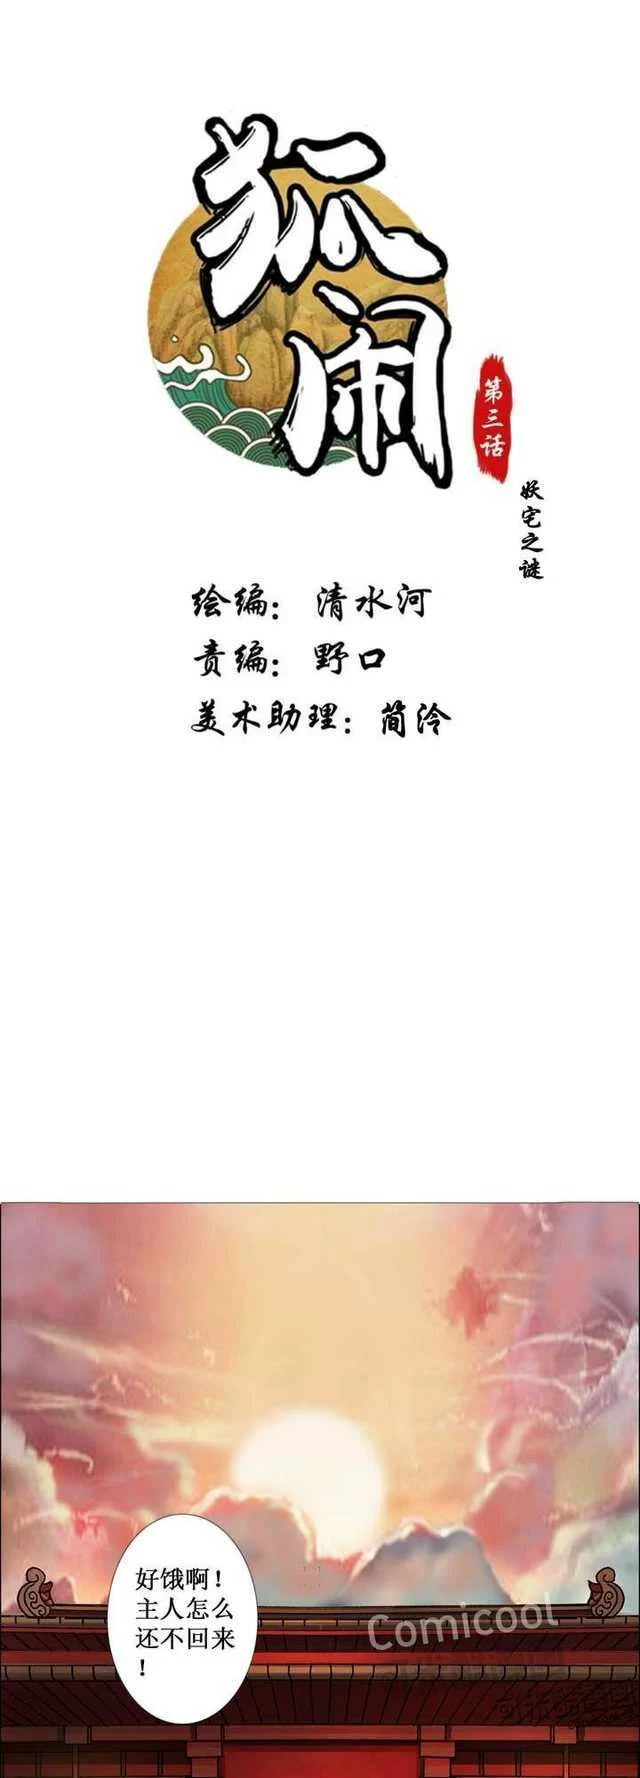 狐闹
第三话
妖宅之谜
绘编：清水河
责编：野口
美术助理：简泠
好饿啊！
主人怎么
还不回来
！
Comicool